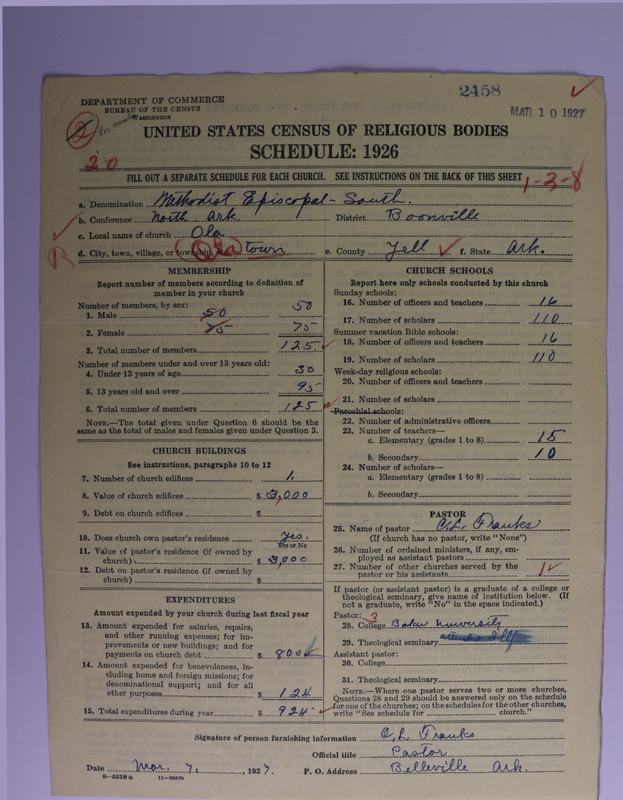 2458
MAR 10 1927
DEPARTMENT OF COMMERCE
BUREAU OF THE CENSUS
WASHINGTON
2
20
UNITED STATES CENSUS OF RELIGIOUS BODIES
SCHEDULE: 1926
FILL OUT A SEPARATE SCHEDULE FOR EACH CHURCH. SEE INSTRUCTIONS ON THE BACK OF THIS SHEET
1-3-8
a. Denomination Methodist Episcopal - South.
b. Conference North Ark. District Boonville
c. Local name of church Ola
d. City, town, village, or township Ola town e. County Yell f. State Ark.
R
MEMBERSHIP
Report number of members according to definition of
member in your church
Number of members, by sex:
1. Male 50 50
2. Female 75 75
3. Total number of members 125
Number of members under and over 13 years old:
4. Under 13 years of age 30
5. 13 years old and over 95
6. Total number of members 125
NOTE.—The total given under Question 6 should be the
same as the total of males and females given under Question 3.
CHURCH BUILDINGS
See instructions, paragraphs 10 to 12
7. Number of church edifices 1.
8. Value of church edifices $ 3,000
9. Debt on church edifices $
10. Does church own pastor's residence yes.
Yes or No
11. Value of pastor's residence (if owned by
church) $ 3,000
12. Debt on pastor's residence (if owned by
church) $
EXPENDITURES
Amount expended by your church during last fiscal year
13. Amount expended for salaries, repairs,
and other running expenses; for im-
provements or new buildings; and for
payments on church debt $ 800
14. Amount expended for benevolences, in-
cluding home and foreign missions; for
denominational support; and for all
other purposes $ 124
15. Total expenditures during year $ 924
CHURCH SCHOOLS
Report here only schools conducted by this church
Sunday schools:
16. Number of officers and teachers 16
17. Number of scholars 110
Summer vacation Bible schools:
18. Number of officers and teachers 16
19. Number of scholars 110
Week-day religious schools:
20. Number of officers and teachers
21. Number of scholars
Parochial schools:
22. Number of administrative officers
23. Number of teachers—
a. Elementary (grades 1 to 8) 15
b. Secondary 10
24. Number of scholars—
a. Elementary (grades 1 to 8)
b. Secondary
PASTOR
25. Name of pastor C.L. Franks
(If church has no pastor, write "None")
26. Number of ordained ministers, if any, em-
ployed as assistant pastors
27. Number of other churches served by the
pastor or his assistants 1
If pastor (or assistant pastor) is a graduate of a college or
theological seminary, give name of institution below. (If
not a graduate, write "No" in the space indicated.)
Pastor: 3
28. College Baker University
29. Theological seminary
Assistant pastor:
30. College
31. Theological seminary
NOTE.—Where one pastor serves two or more churches,
Questions 28 and 29 should be answered only on the schedule
for one of the churches; on the schedules for the other churches,
write "See schedule for church."
Signature of person furnishing information C.L. Franks
Official title Pastor
Date Mar. 7, 1927. P. O. Address Belleville Ark.
8-5518a 11-9554b